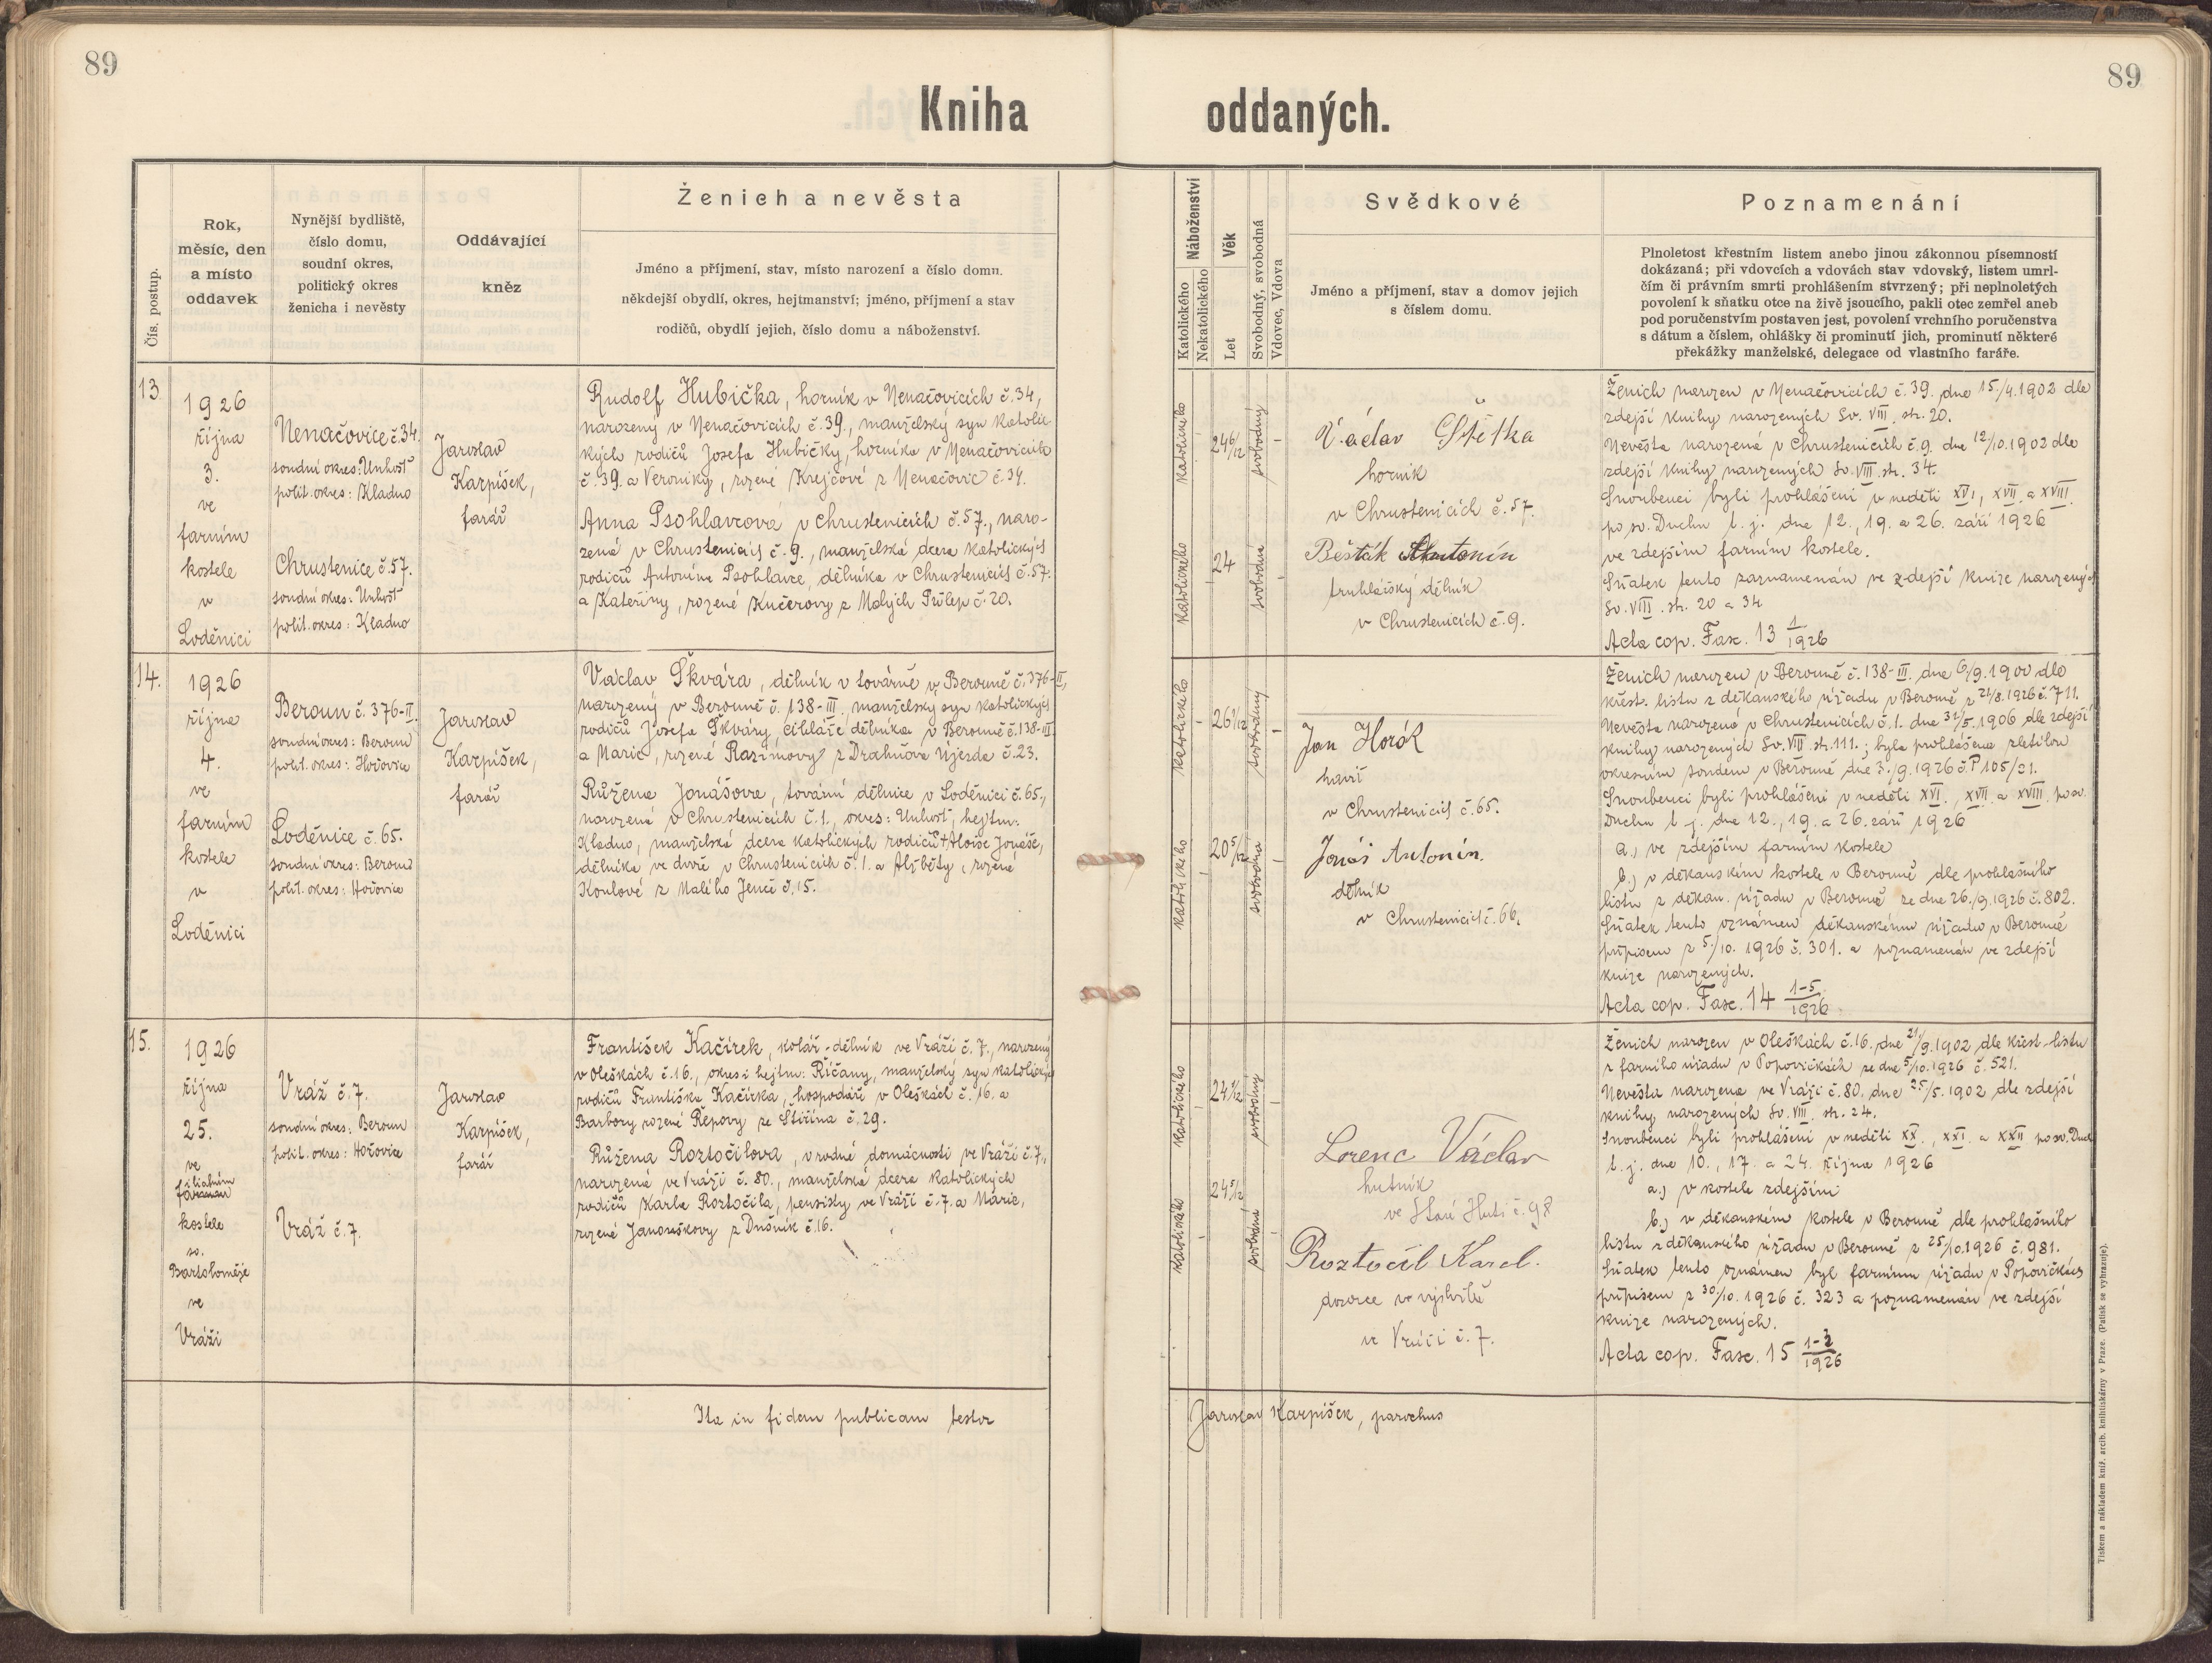 89
89
Kniha oddaných.
Čís. postup.
Rok,
měsíc, den
a místo
oddavek
Nynější bydliště,
číslo domu,
soudní okres,
politický okres
ženicha i nevěsty
Oddávající
kněz
Ženich a nevěsta
Jméno a příjmení, stav, místo narození a číslo domu.
někdejší obydlí, okres, hejtmanství; jméno, příjmení a stav
rodičů, obydlí jejich, číslo domu a náboženství.
Náboženství
Katolického
Nekatolického
Věk
Let
Svobodný, svobodná
Vdovec, Vdova
Svědkové
Jméno a příjmení, stav a domov jejich
s číslem domu.
Poznamenání
Plnoletost křestním listem anebo jinou zákonnou písemností
dokázaná; při vdovcích a vdovách stav vdovský, listem umrl-
čím či právním smrti prohlášením stvrzený; při neplnoletých
povolení k sňatku otce na živě jsoucího, pakli otec zemřel aneb
pod poručenstvím postaven jest, povolení vrchního poručenstva
s dátum a číslem, ohlášky či prominutí jich, prominutí některé
překážky manželské, delegace od vlastního faráře.
13
1926
října
3.
ve
farním
kostele
v
Loděnici
Nenačovice č. 34.
soudní okres: Unhošť
polit. okres: Kladno
Chrustenice č. 57.
soudní okres: Unhošť
polit. okres: Kladno
Jaroslav
Karpíšek,
farář
Rudolf Hubička, horník v Nenačovicích č. 34,
narozený v Nenačovicích č. 39., manželský syn katolic
kých rodičů Josefa Hubičky, horníka v Nenačovicích
č. 39. a Veroniky, rozené Krejčové z Nenačovic č. 34.
Anna Psohlavcová v Chrustenicích č. 57., naro-
zená v Chrustenicích č. 9., manželská dcera katolických
rodičů Antonína Psohlavce, dělníka v Chrustenicích č. 57.
a Kateřiny, rozené Kučerovy z Malých Přílep č. 20.
katolického
24 6/12
svobodný
katolického
24
svobodná
Václav Štětka
horník
v Chrustenicích č. 57.
Běšták Antonín
truhlářský dělník
v Chrustenicích č. 9.
Ženich narozen v Nenačovicích č. 39. dne 15./4. 1902 dle
zdejší knihy narozených Sv. VIII. str. 20.
Nevěsta narozená v Chrustenicích č. 9. dne 12/10. 1902 dle
zdejší knihy narozených Sv. VIII. str. 34.
Snoubenci byli prohlášeni v neděli XVI., XVII. a XVIII.
po sv. Duchu t. j. dne 12., 19. a 26. září 1926
ve zdejším farním kostele.
Sňatek tento zaznamenán ve zdejší knize narozených
Sv. VIII. str. 20 a 34.
Acta cop. Fasc. 13 1/1926
14.
1926
října
4.
ve
farním
kostele
v
Loděnici
Beroun č. 376-II.
soudní okres: Beroun
polit. okres: Hořovice
Loděnice č. 65.
soudní okres: Beroun
polit. okres: Hořovice
Jaroslav
Karpíšek,
farář
Václav Škvára, dělník v továrně v Berouně č. 376-II,
narozený v Berouně č. 138-III., manželský syn katolických
rodičů Josefa Škváry, cihláře dělníka v Berouně č. 138-III.
a Marie, rozené Razímovy z Drahňova Újezda č. 23.
Růžena Jonášova, tovární dělnice v Loděnici č. 65.,
narozená v Chrustenicích č. 1., okres: Unhošť, hejtm:
Kladno, manželská dcera katolických rodičů + Aloise Jonáše,
dělníka ve dvoře v Chrustenicích č. 1. a Alžběty, rozené
Koulové z Malého Jenče č. 15.
katolického
26 1/12
svobodný
katolického
20 5/12
svobodná
Jan Horák
havíř
v Chrustenicích č. 65.
Jonáš Antonín.
dělník
v Chrustenicích č. 66.
Ženich narozen v Berouně č. 138-III. dne 6/9. 1900 dle
křest. listu z děkanského úřadu v Berouně z 21/8. 1926 č. 711.
Nevěsta narozená v Chrustenicích č. 1. dne 31/5. 1906 dle zdejší
knihy narozených Sv. VIII. str. 111.; byla prohlášena zletilou
okresním soudem v Berouně dne 3./9. 1926 č. P 105/21.
Snoubenci byli prohlášeni v neděli XVI., XVII. a XVIII. po sv.
Duchu t. j. dne 12., 19. a 26. září 1926
a.) ve zdejším farním kostele
b.) v děkanském kostele v Berouně dle prohlašního
listu z děkan. úřadu v Berouně ze dne 26./9. 1926 č. 802.
Sňatek tento oznámen děkanskému úřadu v Berouně
přípisem z 5./10. 1926 č. 301. a poznamenán ve zdejší
knize narozených.
Acta cop. Fasc. 14 1-5/1926
15.
1926
října
25.
ve
filiálním
farním
kostele
sv.
Bartoloměje
ve
Vráži
Vráž č. 7.
soudní okres: Beroun
polit. okres: Hořovice
Vráž č. 7.
Jaroslav
Karpíšek,
farář
František Kačírek, kolář-dělník ve Vráži č. 7., narozený
v Oleškách č. 16., okres i hejtm: Říčany, manželský syn katolických
rodičů Františka Kačírka, hospodáře v Oleškách č. 16. a
Barbory rozené Řepovy ze Štiřína č. 29.
Růžena Roztočilova, v rodné domácnosti ve Vráži č. 7.,
narozená ve Vráži č. 80., manželská dcera katolických
rodičů Karla Roztočila, pensisty ve Vráži č. 7. a Marie,
rozené Janouškovy z Dušník č. 16.
katolického
24 1/12
svobodný
katolického
24 5/12
svobodná
Lorenc Václav
hutník
ve Staré Huti č. 98
Roztočil Karel.
dozorce ve výslužbě
ve Vráži č. 7.
Ženich narozen v Oleškách č. 16. dne 21/9. 1902 dle křest. listu
z farního úřadu v Popovičkách ze dne 5/10. 1926 č. 521.
Nevěsta narozena ve Vráži č. 80. dne 25/5. 1902 dle zdejší
knihy narozených Sv. VIII. str. 24.
Snoubenci byli prohlášeni v neděli XX., XXI. a XXII. po sv. Duch
t. j. dne 10., 17. a 24. října 1926
a.) v kostele zdejším
b.) v děkanském kostele v Berouně dle prohlašního
listu z děkanského úřadu v Berouně z 25/10. 1926 č. 981.
Sňatek tento oznámen byl farnímu úřadu v Popovičkách
přípisem z 30./10. 1926 č. 323 a poznamenán ve zdejší
knize narozených.
Acta cop. Fasc. 15 1-3/1926
Ita in fidem publicam testor
Jaroslav Karpíšek, parochus
Tiskem a nákladem kníž. arcib. knihtiskárny v Praze. (Patisk se vyhrazuje).